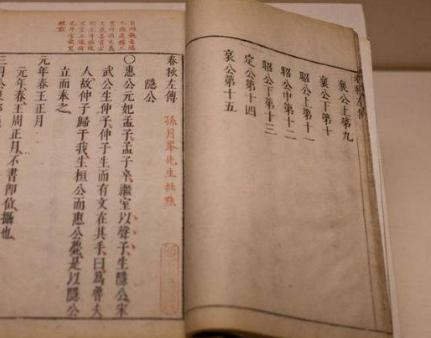 襄公上第九
襄公下第十
昭公上第十一
昭公中第十二
昭公下第十三
定公第十四
哀公第十五
春秋左傳 孫月峯先生批點
隱公
〇惠公元妃孟子孟子卒繼室以聲子生隱公宋
武公生仲子仲子生而有文在其手曰爲魯夫
人故仲子歸于我生桓公而惠公薨是以隱公
立而奉之
元年春王正月
元年春王周正月不書即位攝也
三月公